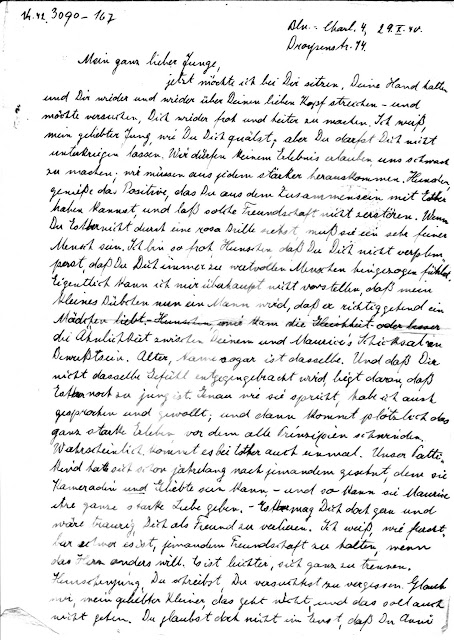 K.42.3090-167
Bln.-Charl. 4, 29.X.40.
Droysenstr. 14.
Mein ganz lieber Junge,
jetzt möchte ich bei Dir sitzen, Deine Hand halten
und Dir wieder und wieder über Deinen lieben Kopf streichen - und
möchte versuchen, Dich wieder froh und heiter zu machen. Ich weiß,
mein geliebter Jung, wie Du Dich quälst, aber Du darfst Dich nicht
unterkriegen lassen. Wir dürfen keinem Erlebnis erlauben, uns schwach
zu machen, wir müssen aus jedem stärker herauskommen. Hunschen,
genieße das Positive, das Du aus dem Zusammensein mit Esther
haben kannst, und laß solche Freundschaft nicht zerstören. Wenn
Du Esther nicht durch eine rosa Brille siehst, muß sie ein sehr feiner
Mensch sein. Ich bin so froh Hunschen, daß Du Dich nicht verplem-
perst, daß Du Dich immer zu wertvollen Menschen hingezogen fühlst.
Eigentlich kann ich mir überhaupt nicht vorstellen, daß mein
kleines nun ein Mann wird, daß er richtiggehend ein
Mädchen liebt. - Hunschen, mir kam die Gleichheit oder besser
die Ähnlichkeit zwischen Deinem und Maurice's Schicksal zu
Bewußtsein. Alter, Name sogar ist dasselbe. Und daß Dir
nicht dasselbe Gefühl entgegengebracht wird, liegt daran, daß
Esther noch zu jung ist. Genau wie sie spricht, hab ich auch
gesprochen und gewollt; und dann kommt plötzlich das
ganz starke Erleben, vor dem alle Prinzipien schwinden.
Wahrscheinlich kommt es bei Esther auch einmal. Unser
Kind hatte sich schon jahrelang nach jemandem gesehnt, dem sie
Kameradin und Geliebte sein kann - und so kann sie Maurice
ihre ganze starke Liebe geben. - Esther mag Dich doch gern und
wäre traurig, Dich als Freund zu verlieren. Ich weiß, wie furcht-
bar schwer es ist, jemandem Freundschaft zu halten, wenn
das Herz anders will. Es ist leichter, sich ganz zu trennen.
Du schreibst, Du versuchst zu vergessen. Glaub
mir, mein geliebter Kleiner, das geht nicht, und das soll auch
nicht gehen. Du glaubst doch nicht im Ernst, daß Du Annie